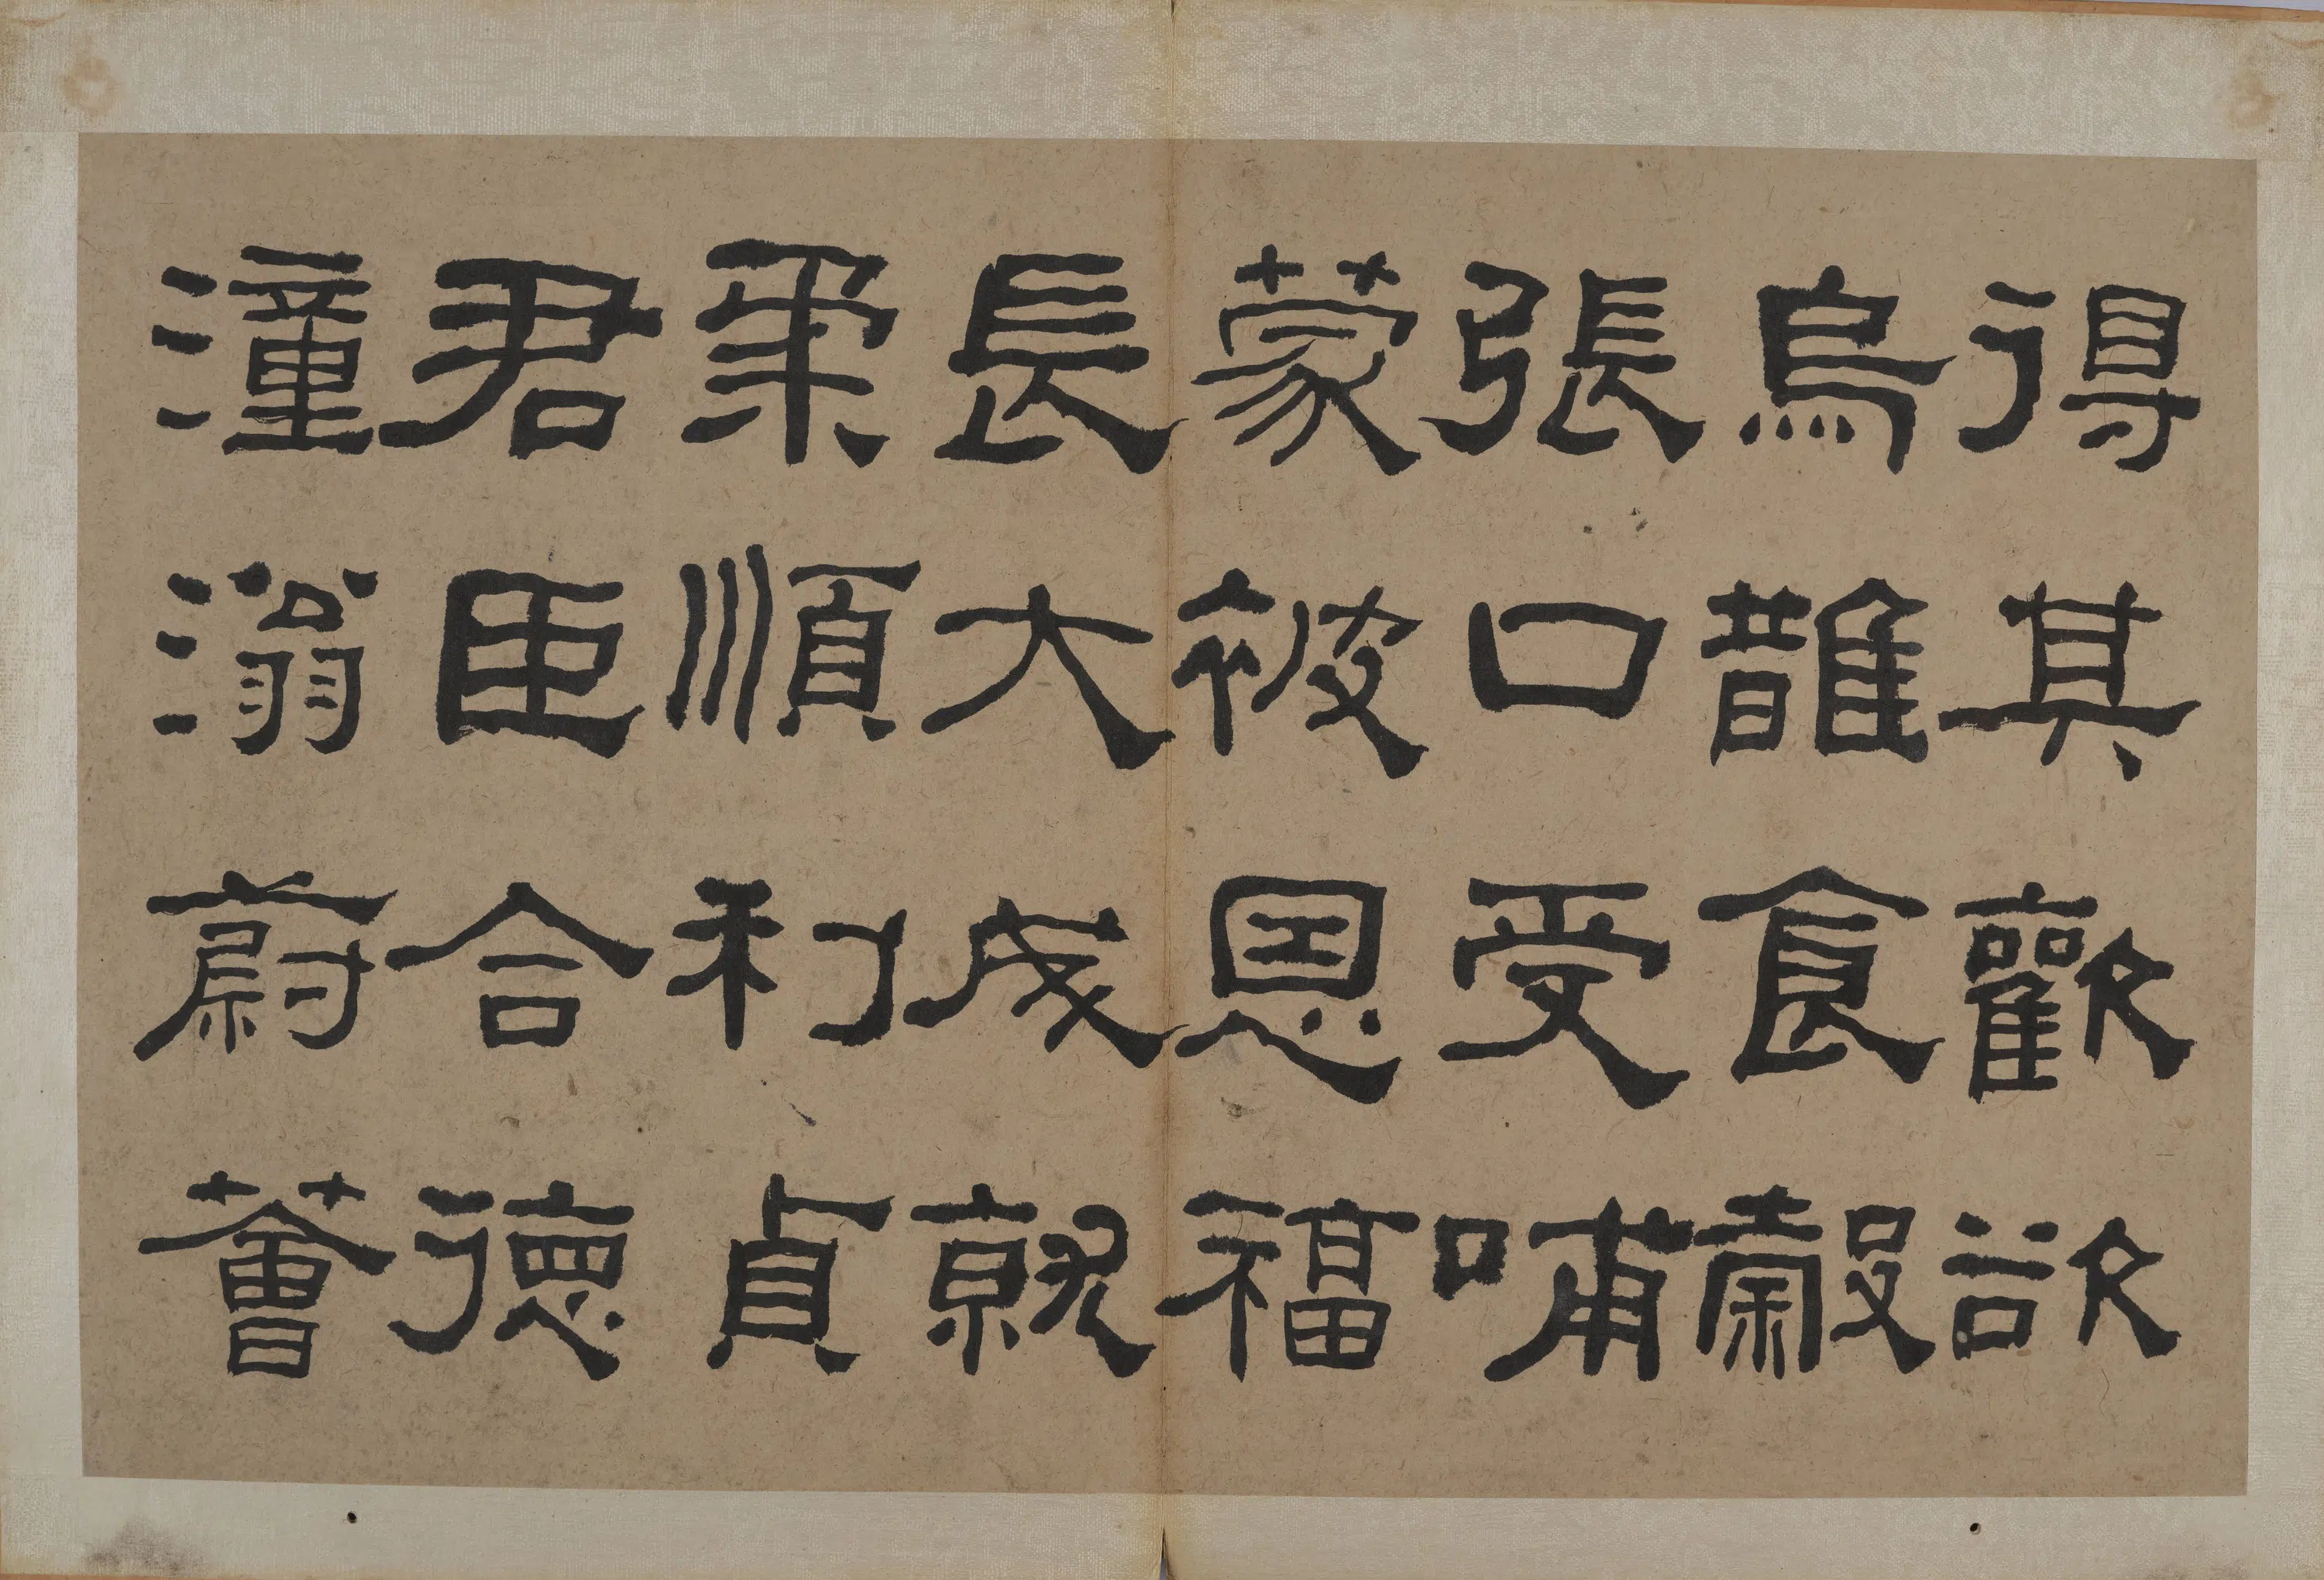 得其歡欲
烏䧿食穀
張口受哺
蒙被恩福
長大成就
柔順利貞
君臣合德
潼滃蔚薈